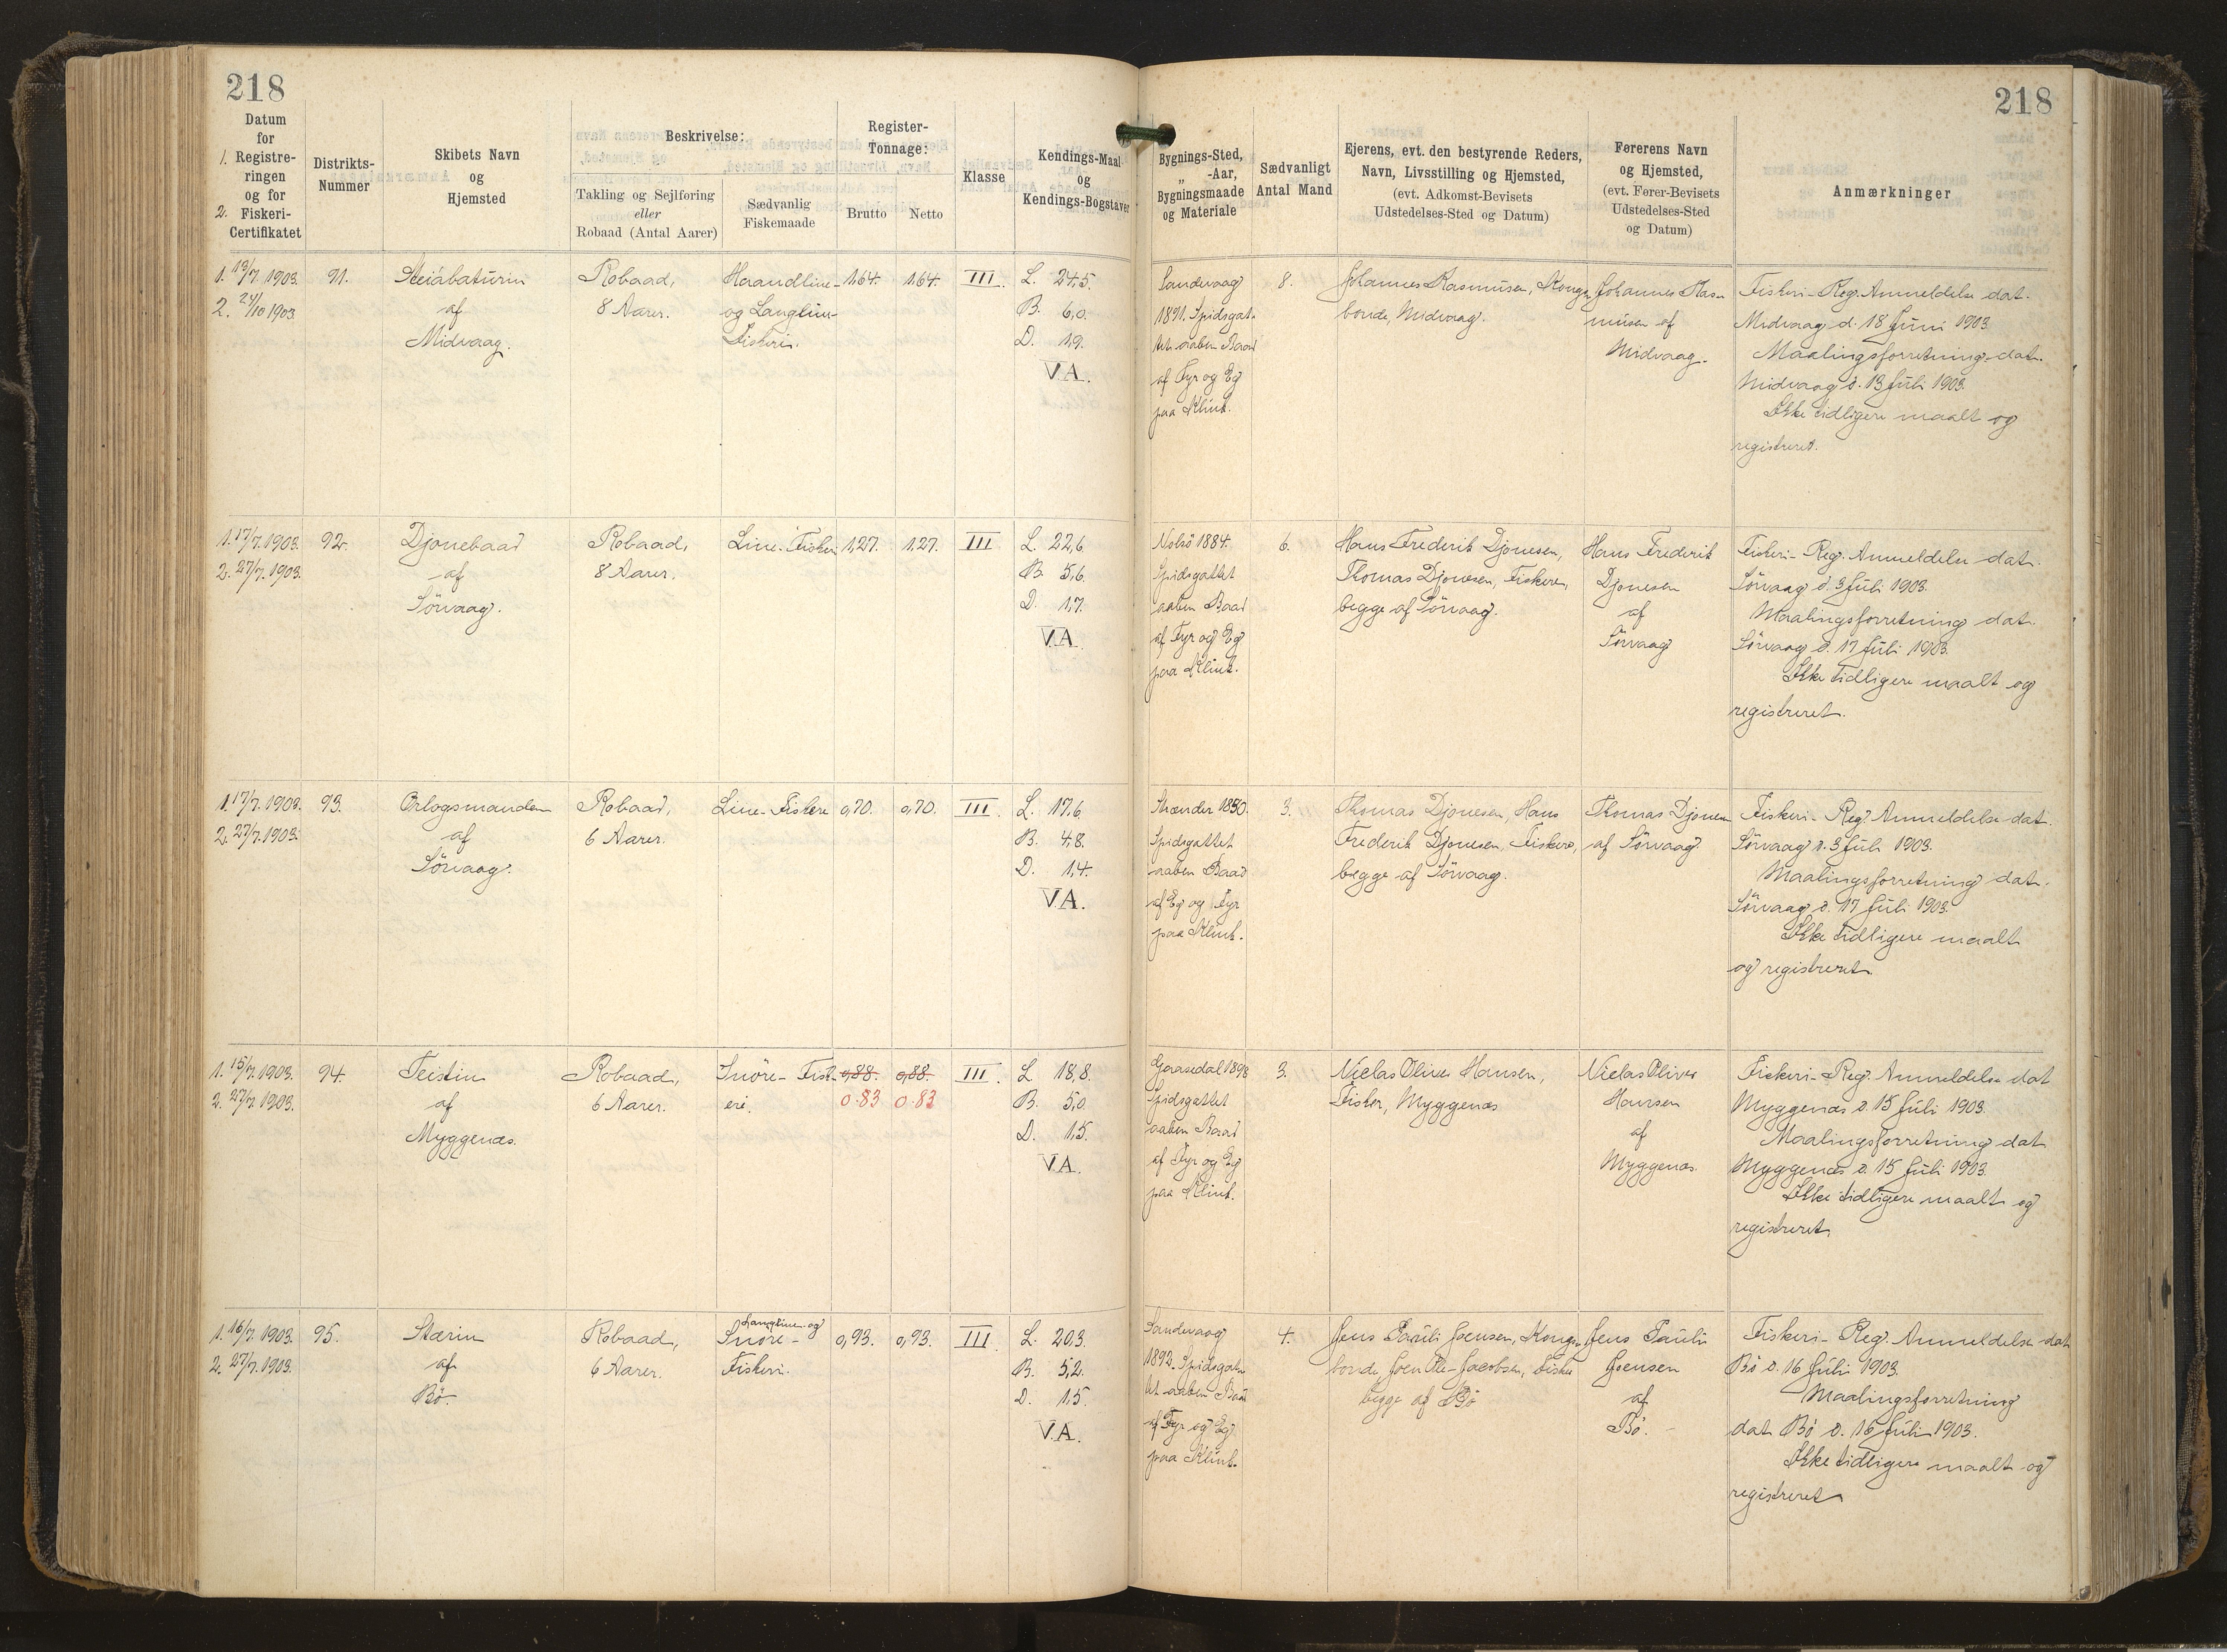 218
218
Datum
for
1. Registre-
ringen
og for
2. Fiskeri-
Certifikatet
Distrikts-
Nummer
Skibets Navn
og
Hjemsted
Beskrivelse:
Takling og Sejlføring
eller
Robaad (Antal Aarer)
Sædvanlig
Fiskemaade
Register-
Tonnage:
Brutto
Netto
Klasse
Kendings-Maal
og
Kendings-Bogstaver
Bygnings-Sted,
„ -Aar,
Bygningsmaade
og Materiale
Sædvanligt
Antal Mand
Ejerens, evt. den bestyrende Reders,
Navn, Livsstilling og Hjemsted,
(evt. Adkomst-Bevisets
Udstedelses-Sted og Datum)
Førerens Navn
og Hjemsted,
(evt. Fører-Bevisets
Udstedelses-Sted
og Datum)
Anmærkninger
1. 13/7. 1903.
2. 24/10 1903
91.
af
Midvaag.
Robaad,
8 Aarer.
Haandline-
og Langline-
Fiskeri.
1,64.
1,64.
III.
L. 24,5.
B. 6,0.
D. 1,9.
V.A.
Sandevaag
1891. Spidsgat-
tet aaben Baad
af Fyr og Eg
paa Klink.
8.
Johannes Rasmussen, Konge-
bonde, Midvaag.
Johannes Ras-
mussen af
Midvaag.
Fiskeri-Reg. Anmeldelse dat.
Midvaag d. 18 Juni 1903
Maalingsforretning dat.
Midvaag d. 13 Juli 1903.
Ikke tidligere maalt og
registreret.
1. 17/7. 1903.
2. 27/7. 1903.
92.
Djonebaad
af
Sörvaag.
Robaad,
8 Aarer.
Line-Fiskeri
1,27.
1,27.
III
L. 22,6
B. 5,6
D. 1,7.
V.A.
Nolsö 1884.
Spidsgattet
aaben Baad
af Fyr og Eg
paa Klink.
6.
Hans Frederik Djonesen,
Thomas Djonesen, Fiskere,
begge af Sörvaag.
Hans Frederik
Djonesen
af
Sörvaag
Fiskeri-Reg. Anmeldelse dat.
Sörvaag d. 3 Juli 1903.
Maalingsforretning dat.
Sörvaag d. 17 Juli 1903.
Ikke tidligere maalt og
registreret.
1. 17/7. 1903.
2. 27/7. 1903.
93.
Orlogsmanden
af
Sörvaag.
Robaad,
6 Aarer.
Line-Fiskere
0,70.
0,70.
III.
L. 17,6
B. 4,8.
D. 1,4.
V.A.
Strænder 1850.
Spidsgattet
aaben Baad
af Eg og Fyr
paa Klink.
3.
Thomas Djonesen, Hans
Frederik Djonesen, Fiskere,
begge af Sörvaag.
Thomas Djonesen
af Sörvaag
Fiskeri-Reg. Anmeldelse dat.
Sörvaag d. 3 Juli 1903.
Maalingsforretning dat.
Sörvaag d. 17 Juli 1903.
Ikke tidligere maalt
og registreret.
1. 15/7. 1903.
2. 27/7. 1903.
94.
Teistin
af
Myggenæs.
Robaad,
6 Aarer.
Snöre-Fisk-
eri.
0,88.
0,88.
0.83
0.83
III.
L 18,8.
B. 5,0.
D. 1,5.
V.A.
Gaasedal 1898
Spidsgattet
aaben Baad
af Fyr og Eg
paa Klink.
3.
Niclas Oliver Hansen,
Fisker, Myggenæs
Niclas Oliver
Hansen
af
Myggenæs.
Fiskeri-Reg. Anmeldelse dat
Myggenæs d. 15 Juli 1903.
Maalingsforretning dat
Myggenæs d. 15 Juli 1903.
Ikke tidligere maalt og
registreret.
1. 16/7. 1903.
2. 27/7. 1903.
95.
Stærin
af
Bö.
Robaad,
6 Aarer.
Langline og
Snöre-
Fiskeri.
0,93.
0,93.
III.
L. 20,3.
B. 5,2.
D. 1,5.
V.A.
Sandevaag
1892. Spidsgat-
tet aaben Baad
af Fyr og Eg
paa Klink.
4.
Jens Pauli Joensen, Konge-
bonde, Joen Ole Jacobsen, Fisker
begge af Bö
Jens Pauli
Joensen
af
Bö.
Fiskeri-Reg. Anmeldelse dat
Bö d. 16 Juli 1903.
Maalingsforretning
dat Bö d. 16 Juli 1903.
Ikke tidligere maalt og
registreret